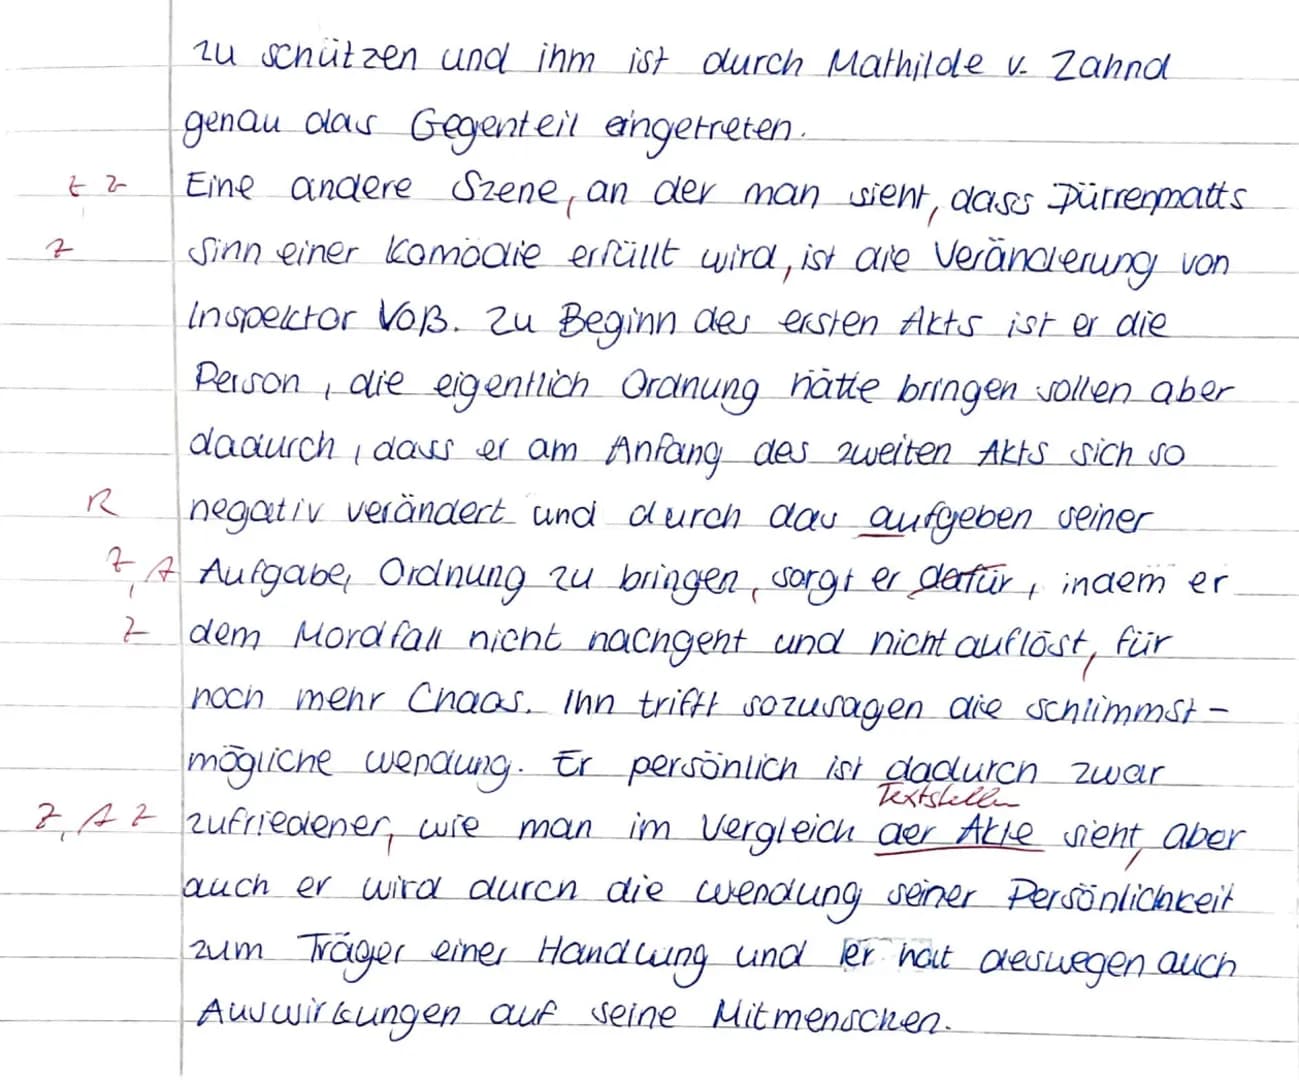 zu schützen und ihm ist durch Mathilde v. Zahnd
genau das Gegenteil eingetreten.
z z Eine andere Szene, an der man sieht, dass Dürrenmatts
z Sinn einer Komödie erfüllt wird, ist die Veränderung von
Inspektor Voß. Zu Beginn des ersten Akts ist er die
Person, die eigentlich Ordnung hätte bringen sollen aber
dadurch, dass er am Anfang des zweiten Akts sich so
R negativ verändert und durch das aufgeben seiner
z, A Aufgabe, Ordnung zu bringen, sorgt er dafür, indem er
z dem Mordfall nicht nachgeht und nicht auflöst, für
noch mehr Chaos. Ihn trifft sozusagen die schlimmst-
mögliche wendung. Er persönlich ist dadurch zwar
Textstellen
z, A z zufriedener, wie man im Vergleich der Akte sieht, aber
auch er wird durch die wendung seiner Persönlichkeit
zum Träger einer Handlung und er hat deswegen auch
Auswirkungen auf seine Mitmenschen.